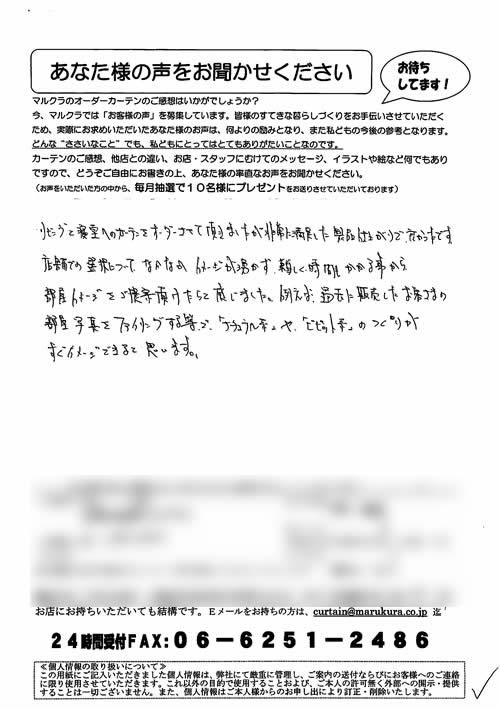 あなた様の声をお聞かせください
お待ち
してます!
マルクラのオーダーカーテンのご感想はいかがでしょうか?
今、マルクラでは「お客様の声」を募集しています。皆様のすてきな暮らしづくりをお手伝いさせていただく
ため、実際にお求めいただいたあなた様のお声は、何よりの励みとなり、また私どもの今後の参考となります。
どんな"ささいなこと"でも、私どもにとってはとてもありがたいことなのです。
カーテンのご感想、他店との違い、お店・スタッフにむけてのメッセージ、イラストや絵など何でもあり
ですので、どうぞご自由にお書きの上、あなた様の率直なお声をお聞かせください。
(お声をいただいた方の中から、毎月抽選で10名様にプレゼントをお送りさせていただいております)
リビングと寝室へのカーテンをオーダーさせて頂きましたが非常に満足した製品仕上がりで、良かったです
店舗での選択について、なかなかイメージが湧かず、難しく時間もかかる事から
部屋イメージをご提示頂けたらと感じました。例えば、過去に販売したお客さまの
部屋写真をファイリングする等で、「ナチュラル系」や、「ビビット系」のつくりが
すぐイメージできると思います。
お店にお持ちいただいても結構です。Eメールをお持ちの方は、curtain@marukura.co.jp 迄!
24時間受付FAX:06-6251-2486
≪個人情報の取り扱いについて≫
この用紙にご記入いただきました個人情報は、弊社にて厳重に管理し、ご案内の送付ならびにお客様へのご連絡
に限り使用させていただきます。これ以外の目的で使用することおよび、ご本人の許可無く外部への開示・提供
することは一切ございません。また、個人情報はご本人様からのお申し出により訂正・削除いたします。